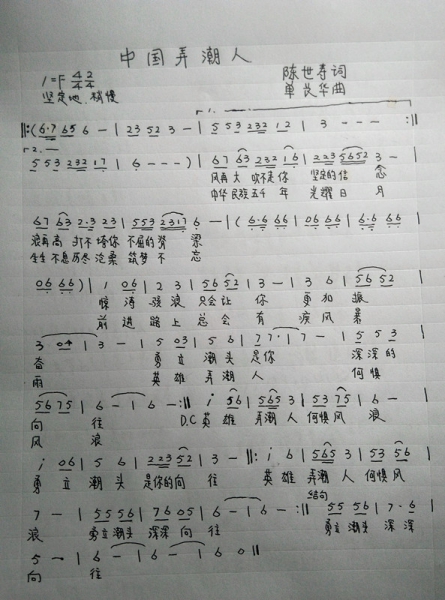 中国弄潮人
1=F 4/4 2/4 陈世寿词
坚定地、稍慢 单长华曲
1.
‖:(6·7 65 6 – | 23 52 3 – | 5 5 3 232 12 | 3 – – – :‖
2.
5 5 3 232 17 | 6 – – –) | 67 63 232 16 | 223 5652 3 –
风再大 吹不走你 坚定的信 念
中华民族五千 年 光耀日 月
67 63 2·3 23 | 553 2317 6 – | (6·6 66 | 06 66 | 6·6 66
浪再高 打不垮你 不屈的脊 梁
生生不息历冬沧桑 筑梦不 忘
06 66) | 1 06 | 2 3 | 56 52 | 3 – | 3 6 | 56 52
惊 涛 骇 浪 只会让 你 更 加 振
前 进 路 上 总会 有 疾 风 暴
3 04 | 3 – | 5 03 | 5 6 | 77·1 | 7 – | 5 5 3
奋 勇 立 潮 头 是你 深深的
雨 英 雄 弄 潮 人 何惧
56 75 | 6 – | 6 – :‖ i 56 | 565 3 | 53 75 | 6 –
向 往 D.C 英 雄 弄潮 人 何惧风 浪
风 浪
i 06 | 5 6 | 223 52 | 3 – ‖: i 6 | 565 3 | 53 56
勇 立 潮 头 是你的向 往 英 雄 弄潮 人 何惧风
结句
7 – | 55 56 | 76 05 | 6 – | 6 – :‖ 55 56 | 7·6
浪 勇立潮头 深深 向 往 勇立潮头 深深
5 – | 6 – | 6 – | 6 0 ‖
向 往